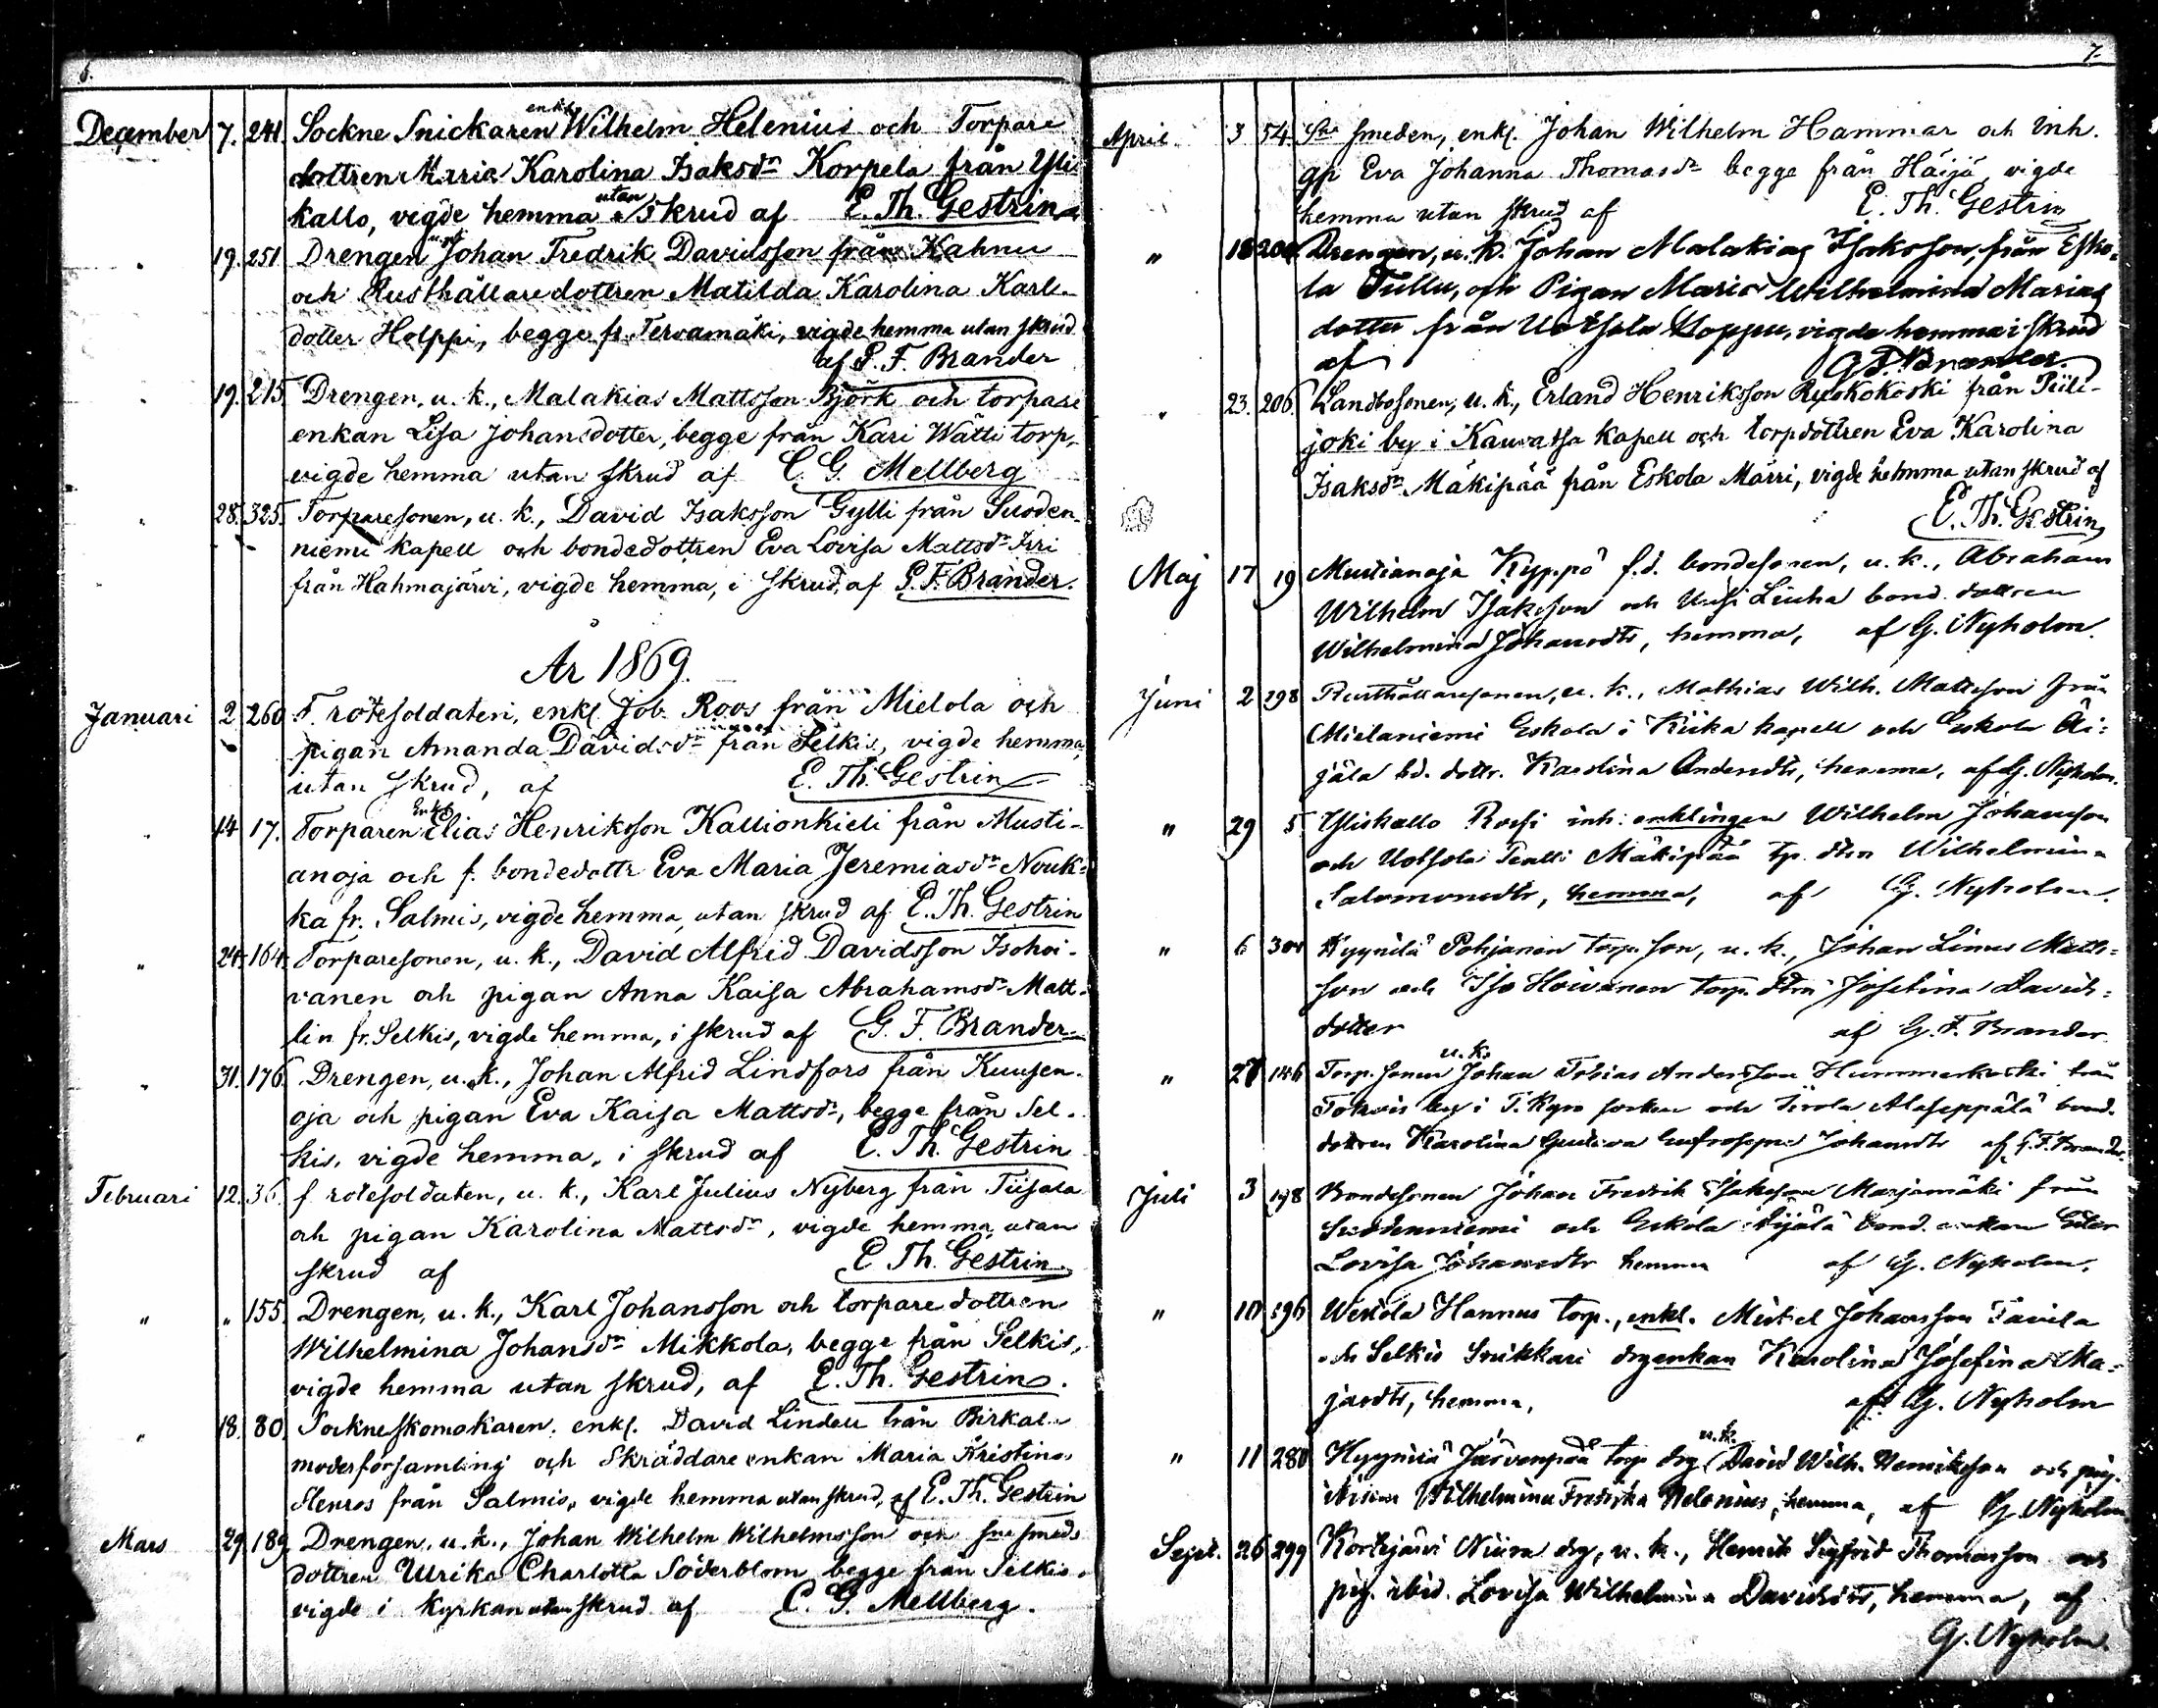 6.
December 7. 241. Sockne Snickaren enkl Wilhelm Helenius och Torpare
dottren Maria Karolina Isaksdr Korpela från Yli
kallo, vigde hemma utan skrud af E. Th. Gestrin
19. 251 Drengen u.k. Johan Fredrik Davidsson från Kahnu
och Rusthållaredottren Matilda Karolina Karls
dotter Helppi, begge fr. Tervamäki, vigde hemma utan skrud
af G. F. Brander
19. 215. Drengen, u. k., Malakias Mattsson Björk och torpare
enkan Lisa Johansdotter, begge från Kari Wätti torp,
vigde hemma utan skrud af C. G. Mellberg
28. 325. Torparesonen, u. k., David Isaksson Gylli från Suoden-
niemi kapell och bondedottren Eva Lovisa Mattsdr Irri
från Hahmajärvi, vigde hemma, i skrud, af G. F. Brander.
År 1869.
Januari 2. 260 F. rotesoldaten, enkl. Job. Roos från Mielola och
pigan Amanda Davidsdr från Selkis, vigde hemma,
utan skrud, af E. Th. Gestrin
14. 17. Torparen Enkl Elias Henriksson Kallionkieli från Musti-
anoja och f. bondedottr Eva Maria Jeremiasdr Nouk-
ka fr. Salmis, vigde hemma utan skrud af E. Th. Gestrin
" 24. 164. Torparesonen, u. k., David Alfrid Davidsson Isohoi-
vanen och pigan Anna Kaisa Abrahamsdr Matt-
lin fr. Selkis, vigde hemma, i skrud af G. F. Brander
" 31. 176. Drengen, u. k., Johan Alfrid Lindfors från Kuusen-
oja och pigan Eva Kaisa Mattsdr, begge från Sel-
kis, vigde hemma, i skrud af E. Th. Gestrin
Februari 12. 36. f. rotesoldaten, u. k., Karl Julius Nyberg från Tiisala
och pigan Karolina Mattsdr, vigde hemma utan
skrud af E Th. Gestrin
" " 155. Drengen, u. k., Karl Johansson och torpare dottren
Wilhelmina Johansdr Mikkola, begge från Selkis,
vigde hemma utan skrud, af E. Th. Gestrin.
" 18. 80. Sockneskomakaren, enkl. David Lindell från Birkala
moderförsamling och Skräddare enkan Maria Kristina
Stenros från Salmis, vigde hemma utan skrud, af E. Th. Gestrin
Mars 29. 189. Drengen, u. k., Johan Wilhelm Wilhelmsson och sne smeds
dottren Ulrika Charlotta Söderblom begge från Selkis,
vigde i kyrkan utan skrud af C. G. Mellberg.
7.
April 3 54. Sne smeden, enkl. Johan Wilhelm Hammar och inh.
gp Eva Johanna Thomasdr begge från Häijä, vigde
hemma utan skrud af E. Th. Gestrin
" 18 Drengen, u. k. Johan Malakias Isaksson, från Esko-
la Tullu, och Pigan Maria Wilhelmina Marias
dotter från Uotsola Hoppu, vigde hemma i skrud
af G F. Brander.
" 23. 206. Landbosonen, u. k., Erland Henriksson Ryokokoski från Piili-
joki by i Kauvatsa kapell och torpdottren Eva Karolina
Isaksdr Mäkipää från Eskola Märri, vigde hemma utan skrud af
E. Th. Gestrin
Maj 17 19 Mustianoja Kyppö f.d. bondesonen, u. k., Abraham
Wilhelm Isaksson och Uusi Liuha bond. dottren
Wilhelmina Johansdtr, hemma, af G. Nyholm.
Juni 2 298 Rusthållaresonen, u. k., Mathias Wilh. Mattsson från
Mielaniemi Eskola i Kiika kapell och Eskola Äi-
jälä bd. dottr. Karolina Andersdtr, hemma, af G. Nyholm.
" 29 5 Yliskallo Rossi inh. enklingen Wilhelm Johansson
och Uotsola Mäkipää tp. dtrn Wilhelmina
Salomonsdtr, hemma, af G. Nyholm.
" 6 Kyynilä Pohjanen torp. son, u. k., Johan Linus Matts-
son och Iso Hoivanen torp. dtrn Josefina Davids-
dotter af G. F. Brander
" 27 146 Torp. sonen u. k. Johan Tobias Andersson Hummerkoski från
by i T. Kyro socken och Alaseppälä bond.
dottren Karolina Gustava Johansdtr af G. F. Brander.
Juli 3 198 Bondesonen Johan Fredrik Isaksson Marjamäki från
Suodenniemi och Eskola Äijälä bond. enkan
Lovisa Johansdtr hemma af G. Nyholm.
" 10 196 Wesiola Hannus torp., enkl. Mickel Johansson Tavila
och Selkis Snikkari drg enkan Karolina Josefina Ma-
jasdtr, hemma, af G. Nyholm
" 11 280 Kyynilä Järvenpää torp drg u.k. David Wilh. Henriksson och pig.
Wilhelmina Fredrika Helenius, hemma, af G. Nyholm
Sept. 26 299 Kortejärvi Niura drg, u. k., Henrik Sigfrid Thomasson och
pig. ibid. Lovisa Wilhelmina Davidsdtr, hemma, af
G. Nyholm.